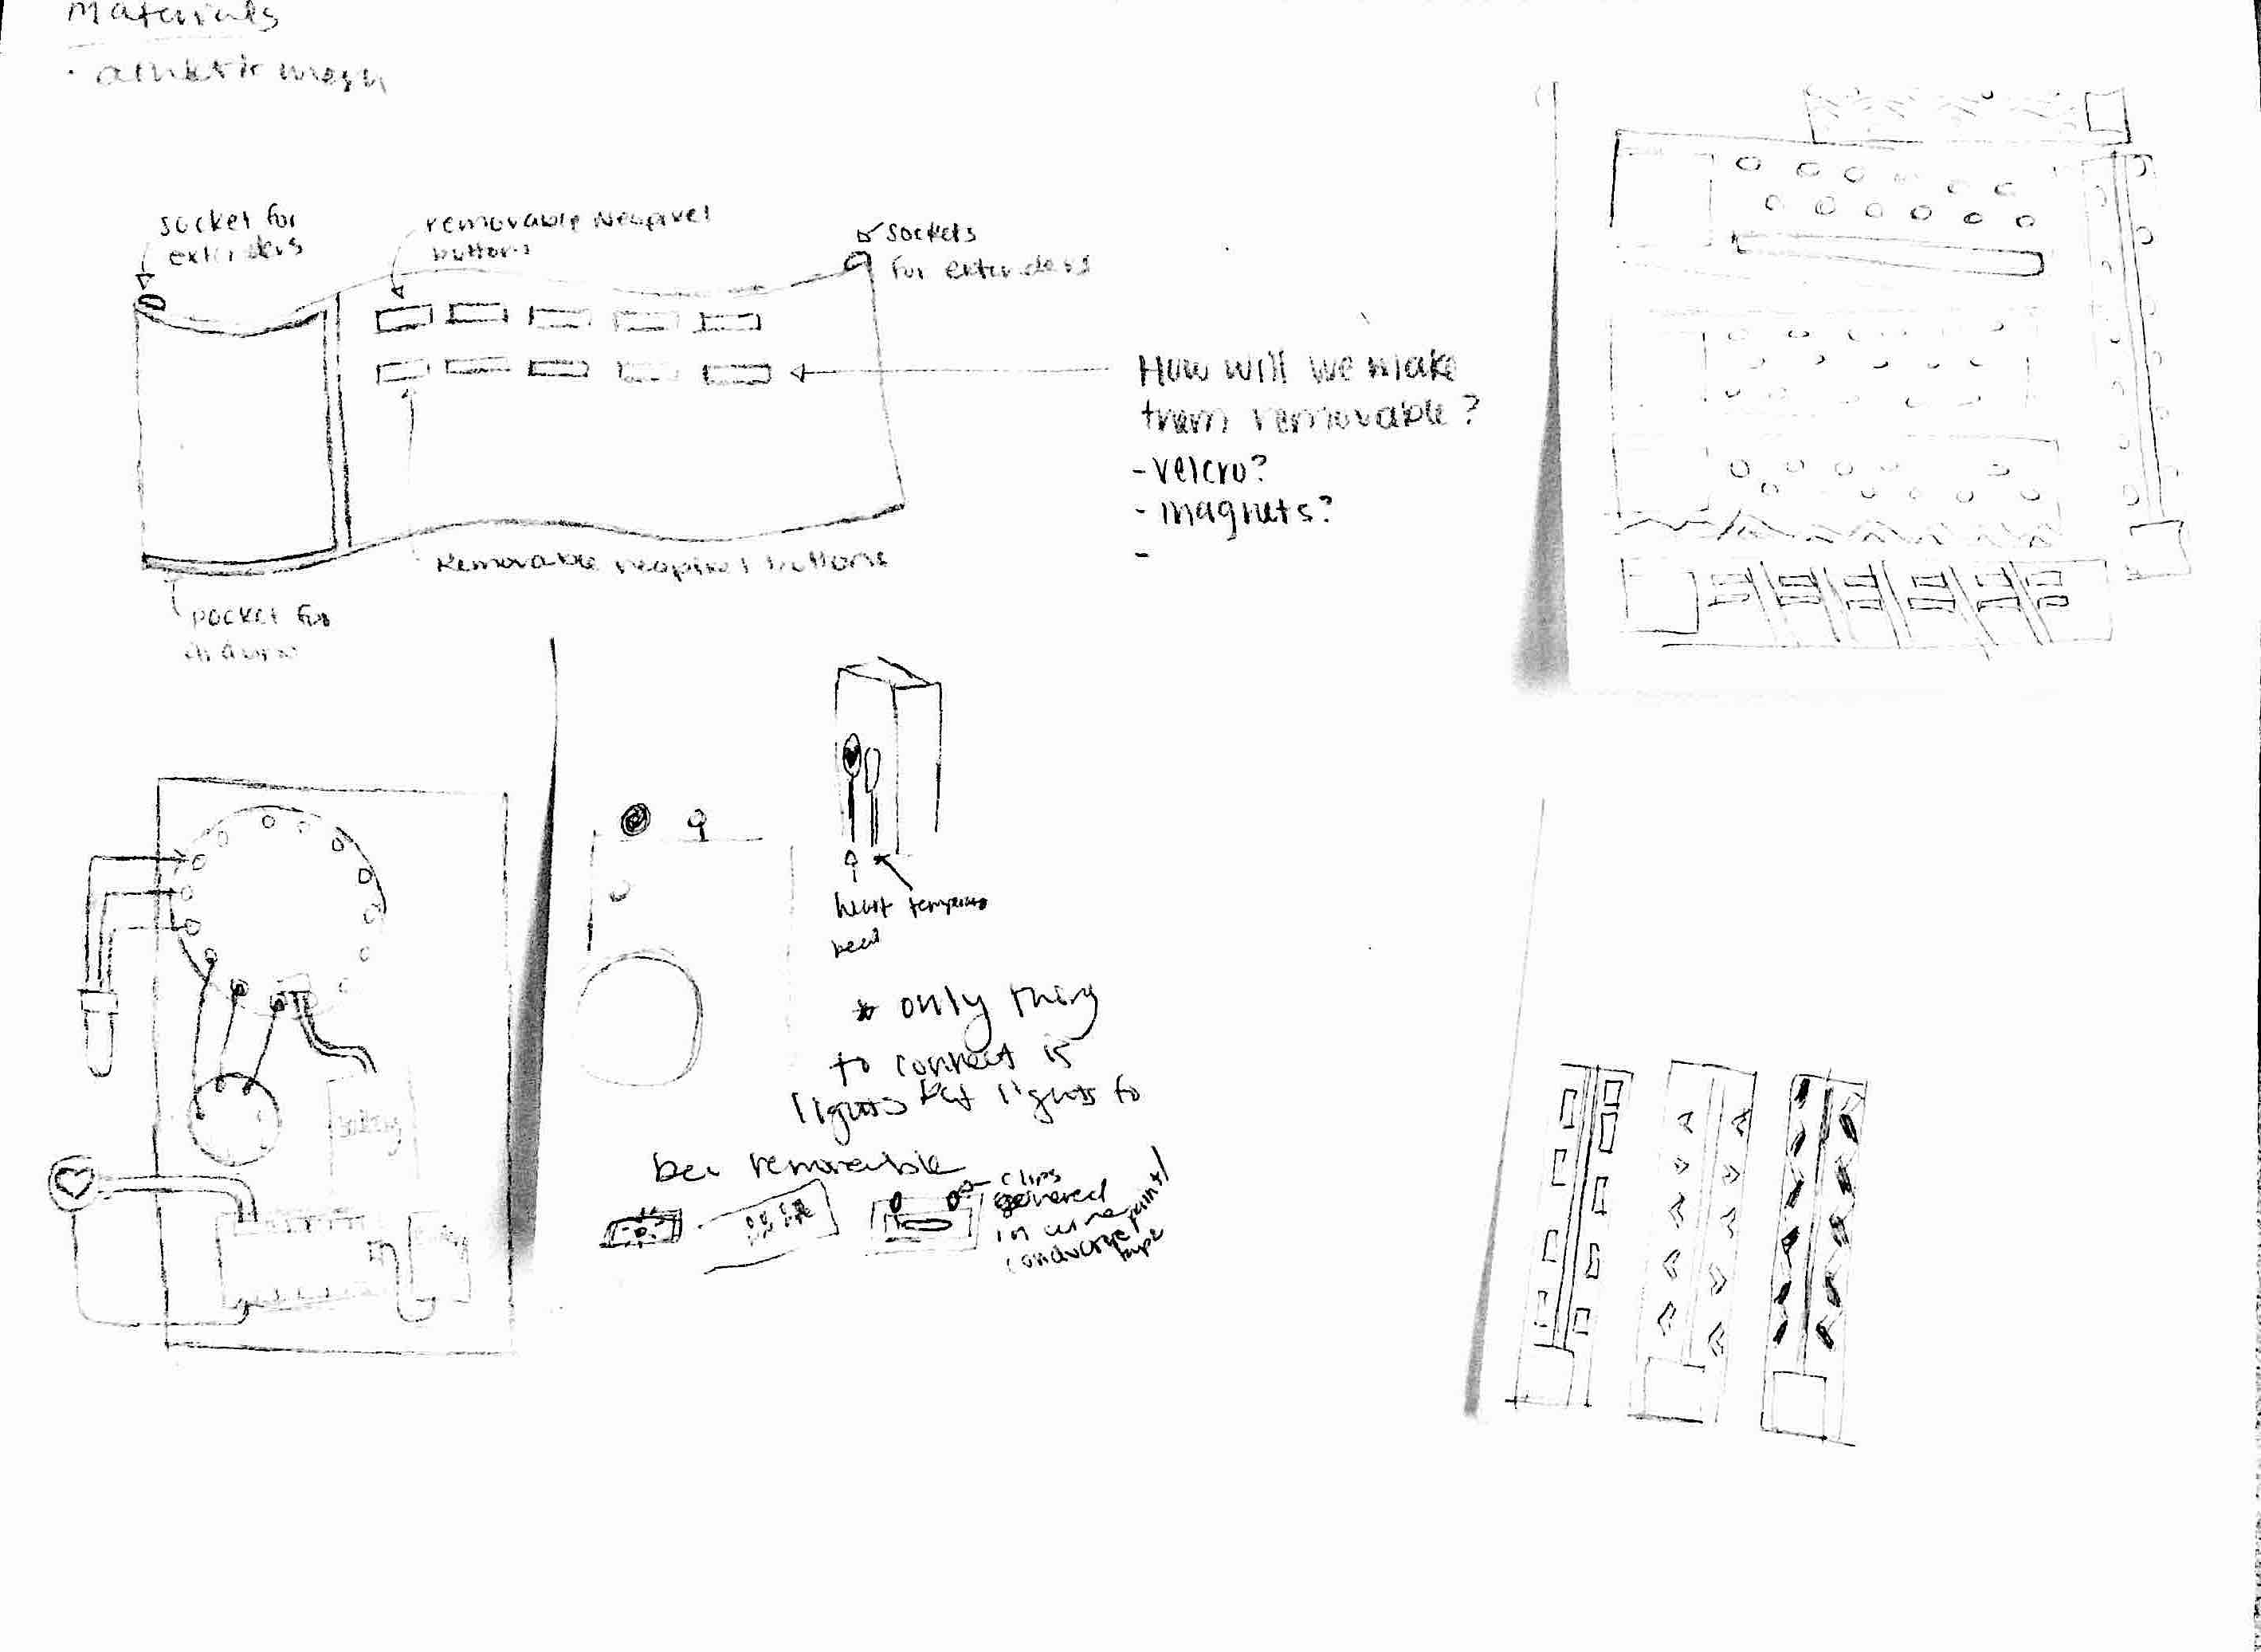 Materials
• athletic mesh
socket for
extenders
removable Neopixel
buttons
sockets
for extenders
How will we make
them removable?
- velcro?
- magnets?
-
Removable neopixel buttons
pocket for
heart temperature
beat
* only thing
to connect is
lights but lights to
be removable
clips
covered
in
conductive
tape
battery